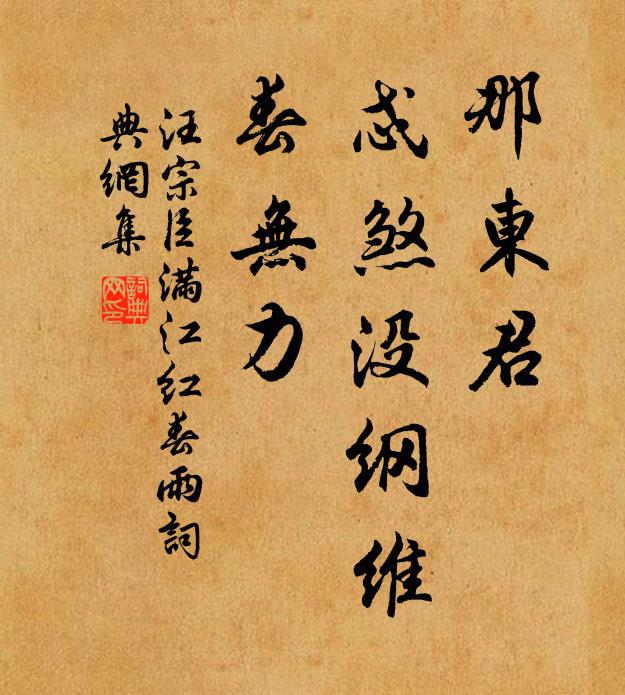 那東君
忒煞没纲维
春無力
汪宗臣滿江红春雨詞
典網集
詞典
网印